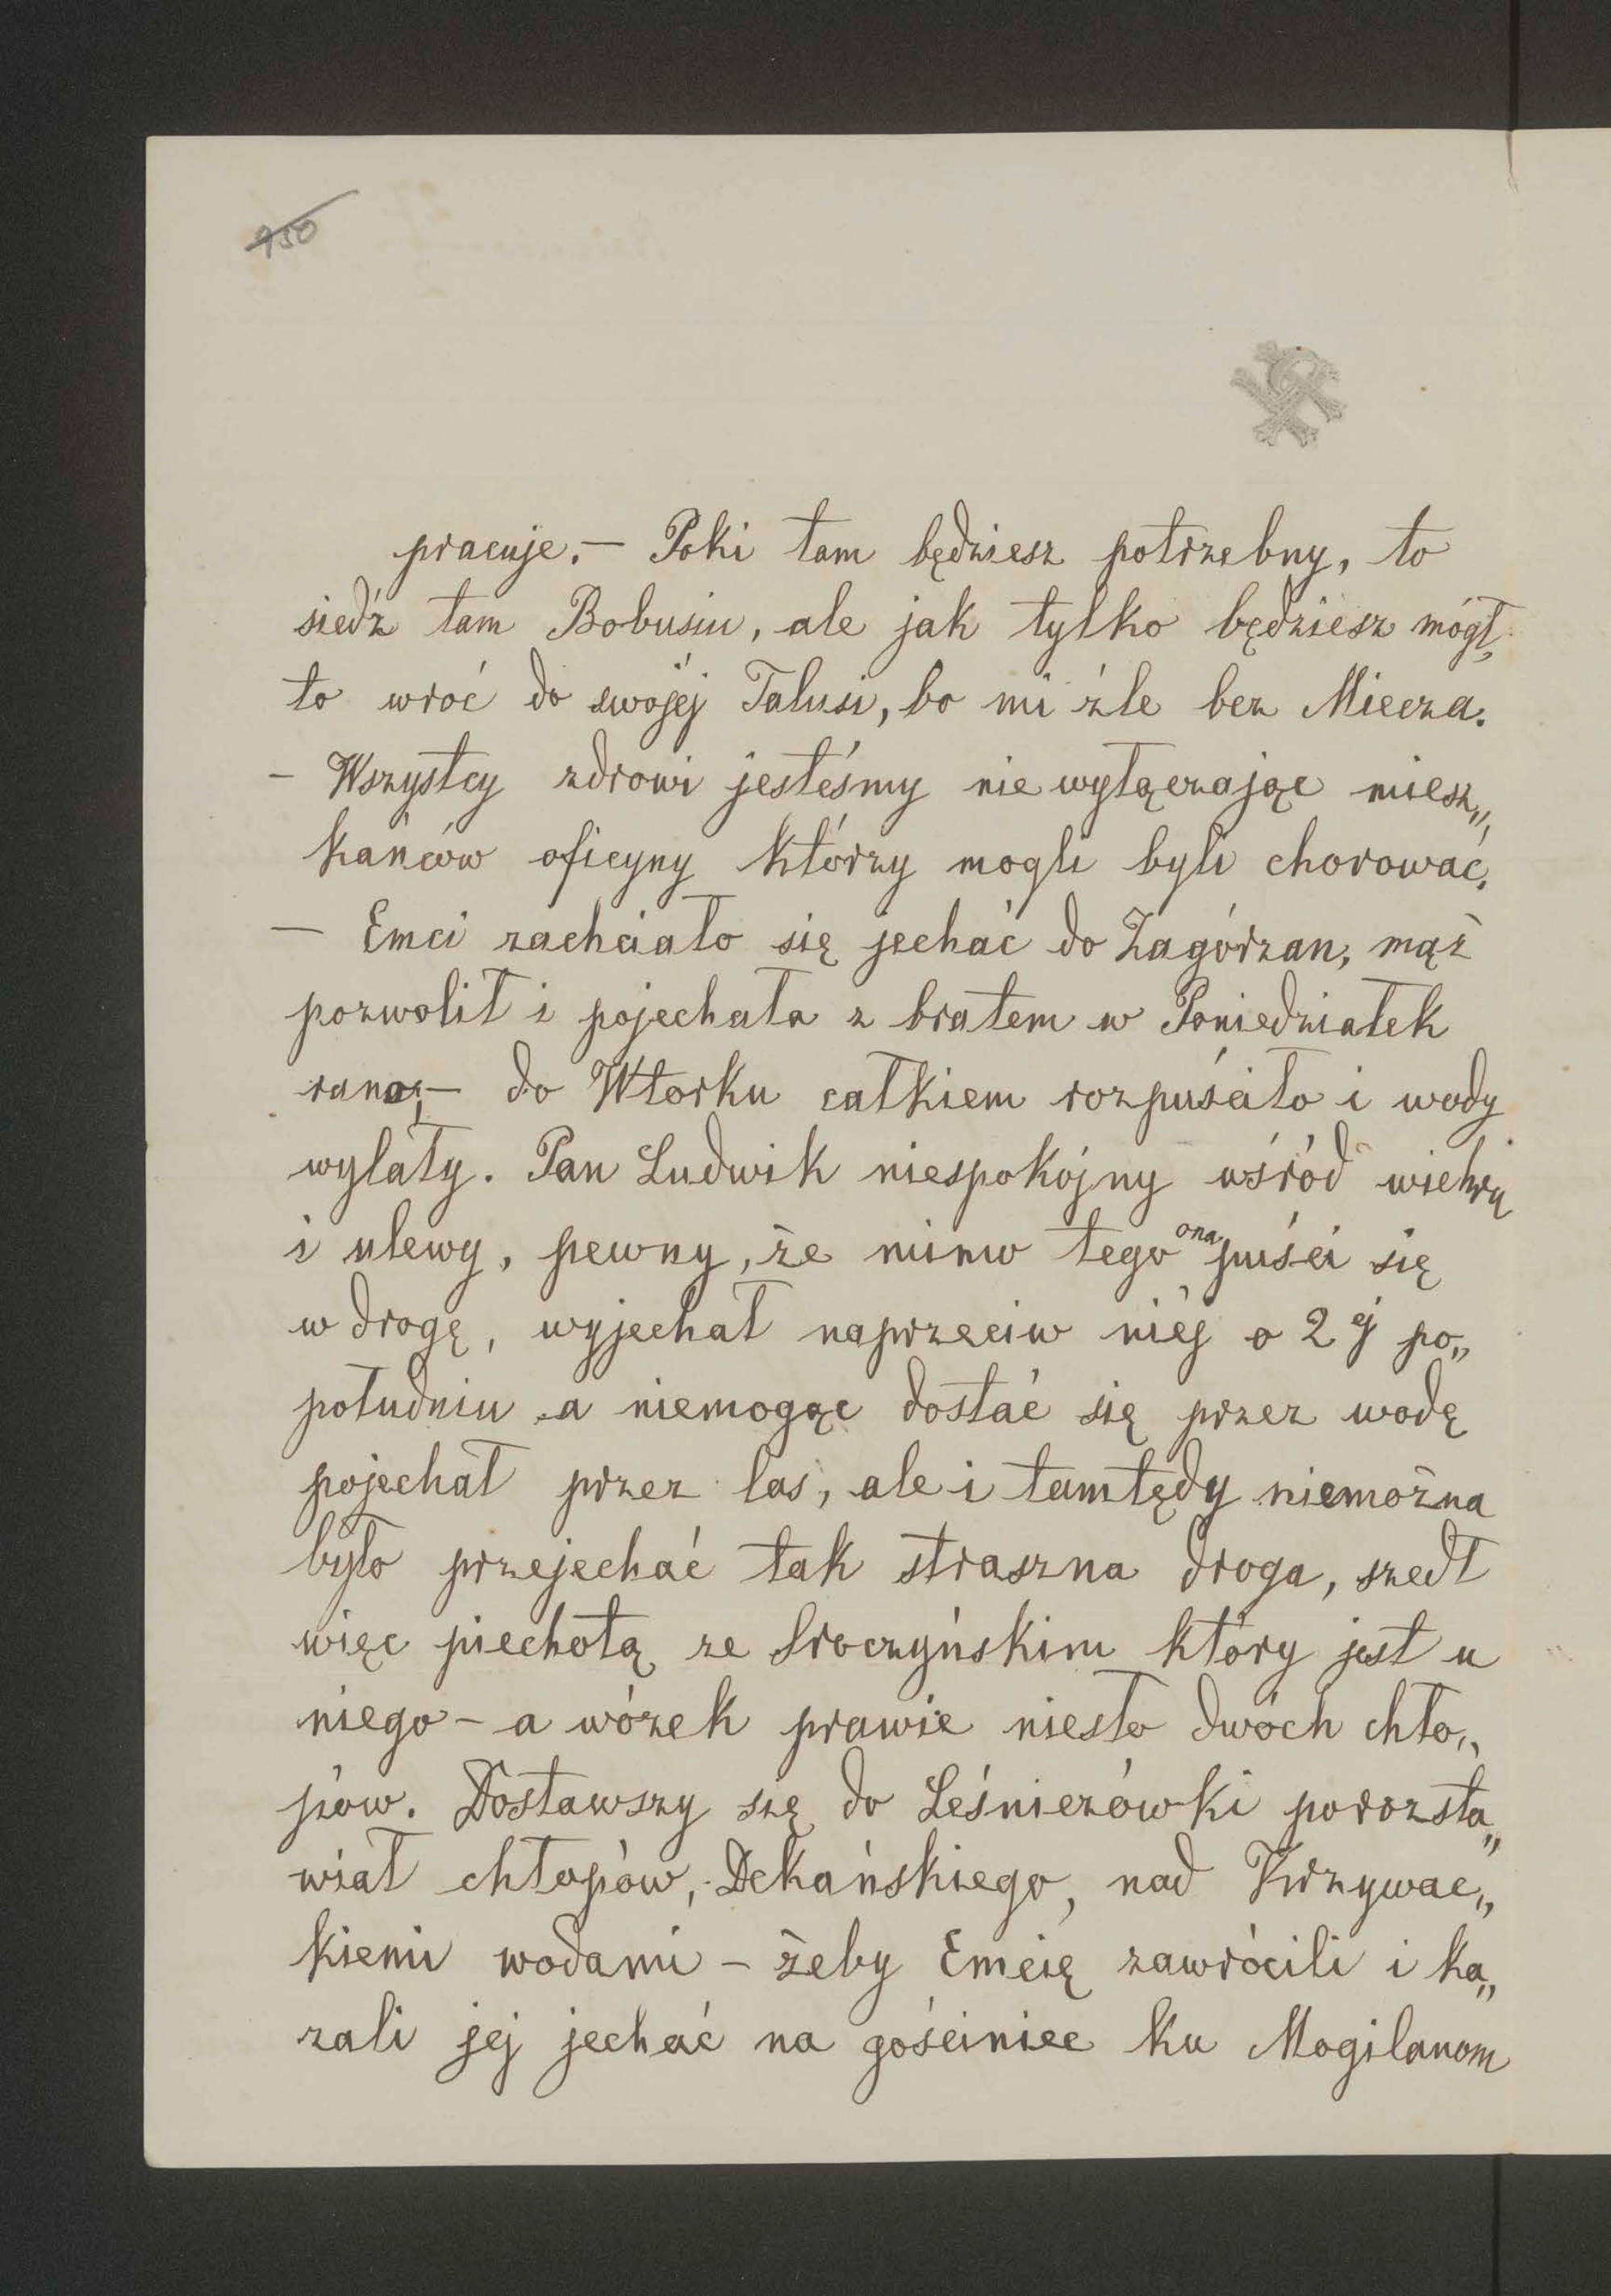 950
pracuje. — Poki tam będziesz potrzebny, to
siedź tam Bobusiu, ale jak tylko będziesz mógł,
to wróć do swojéj Talusi, bo mi źle bez Miecza.
— Wszystcy zdrowi jesteśmy nie wyłączając miesz„
kańców oficyny którzy mogli byli chorować.
— Emci zachciało się jechać do Zagórzan, mąż
pozwolił i pojechała z bratem w Poniedziałek
rano; — do Wtorku całkiem rozpuściło i wody
wylały. Pan Ludwik niespokójny wśród wichru
i ulewy, pewny, że mimo tego ona puści się
w drogę, wyjechał naprzeciw niéj o 2éj po„
południu a niemogąc dostać się przez wodę
pojechał przez las, ale i tamtędy niemożna
było przejechać tak straszna droga, szedł
więc piechotą ze Sroczyńskim który jest u
niego — a wózek prawie niesło dwóch chło„
pów. Dostawszy się do Leśniczówki porozsta„
wiał chłopów, Dekańskiego, nad Krzywac„
kiemi wodami — żeby Emcię zawrócili i ka„
zali jej jechać na gościniec ku Mogilanom